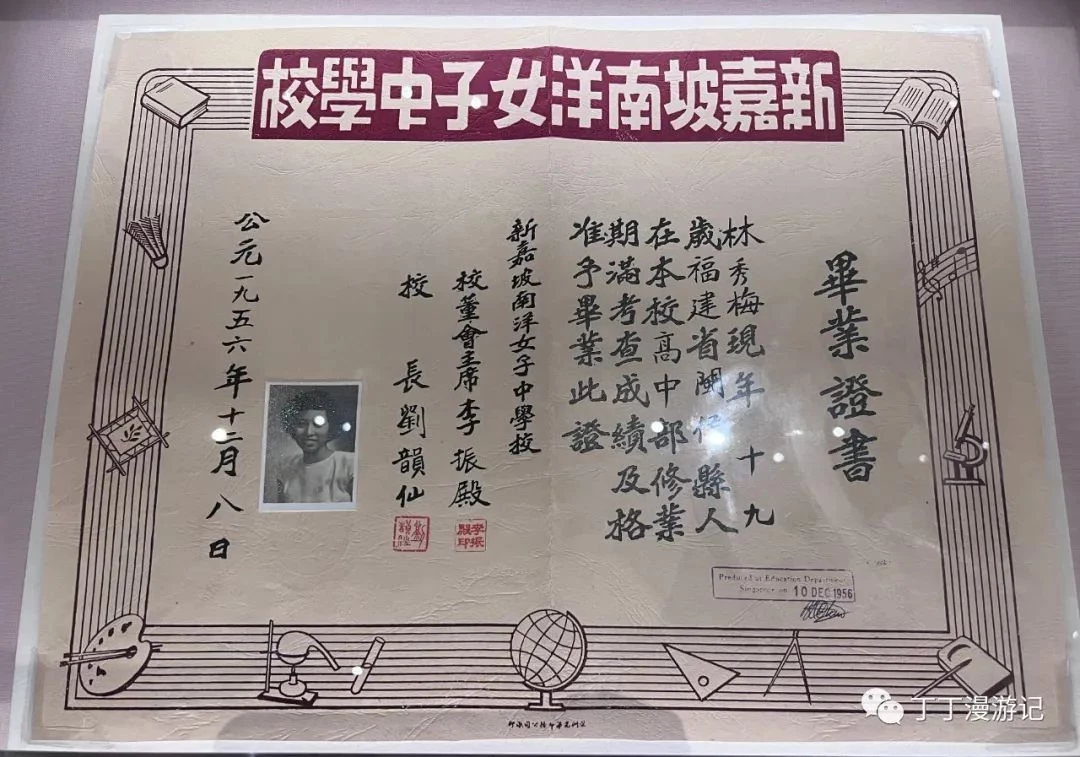 新嘉坡南洋女子中學校
畢業證書
林秀梅現年十九
歲福建省閩侯縣人
在本校高中部修業
期滿考查成績及格
准予畢業此證
新嘉坡南洋女子中學校
校董會主席李振殿
李振殿印
校長劉韻仙
公元一九五六年十二月八日
Produced at Education Department,
Singapore on 10 DEC 1956
丁丁漫游记